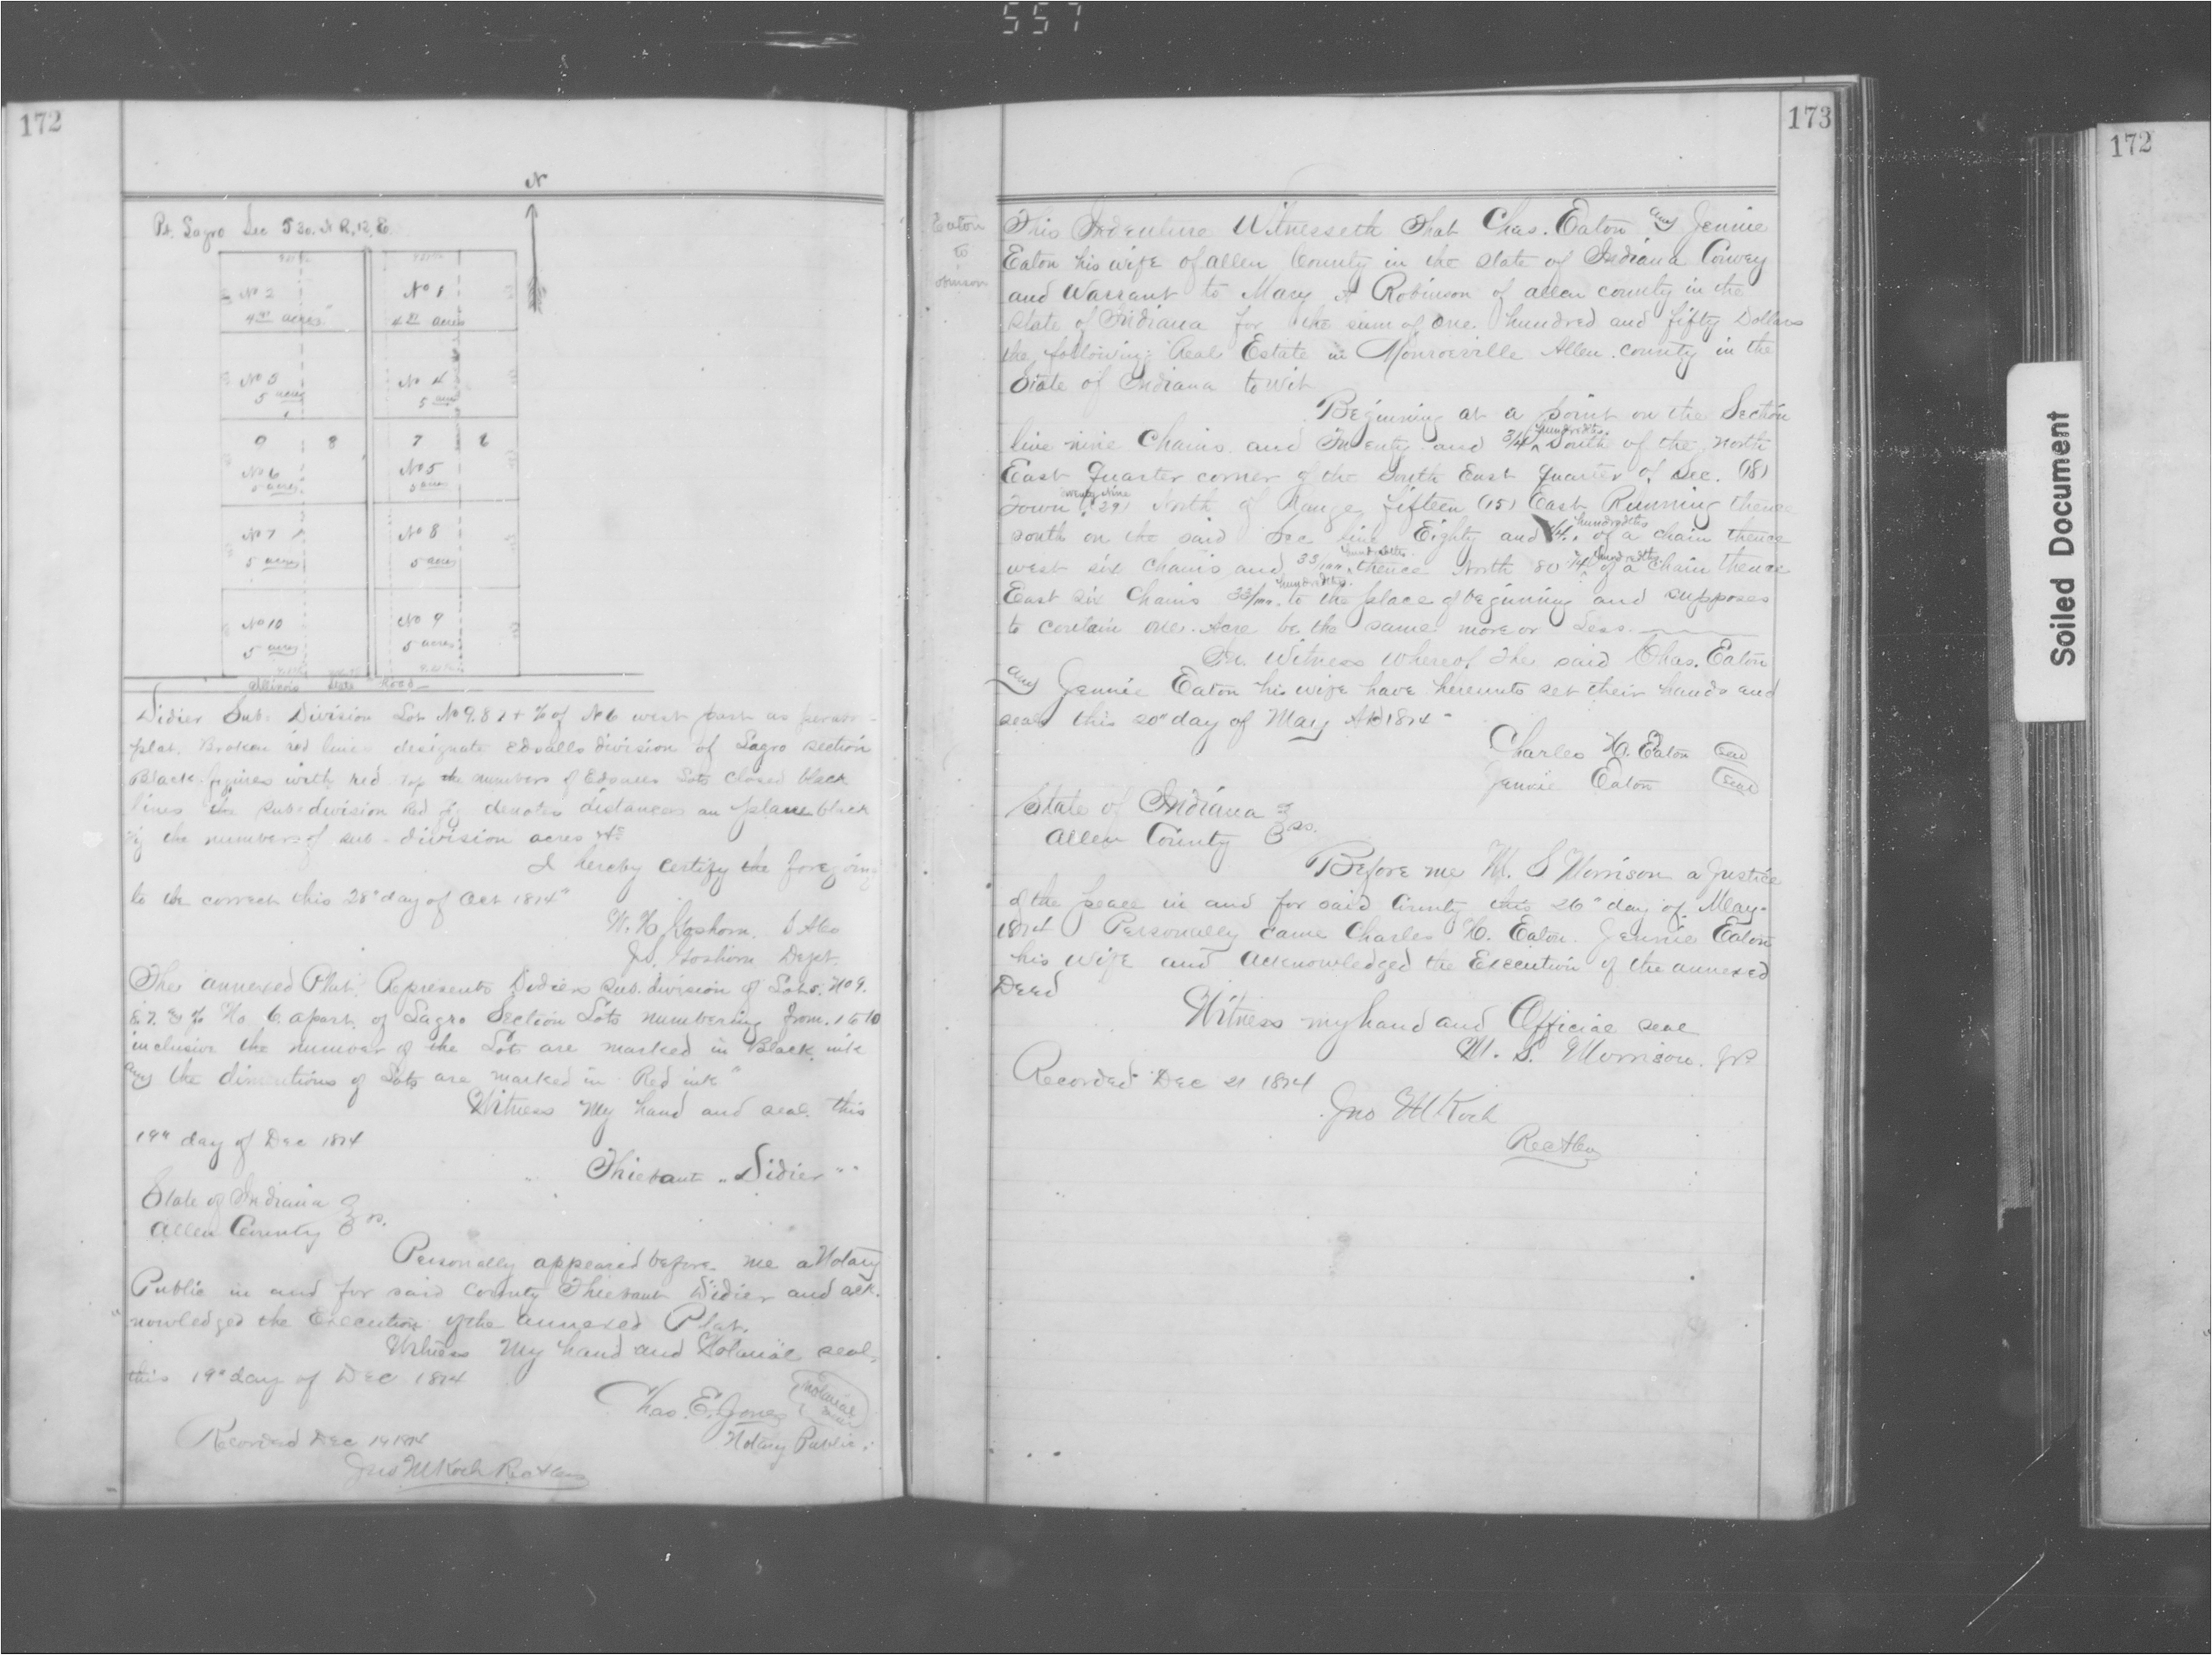 557
172
N
Pt. Lagro Sec 5 30. N R, 12, E.
No 2
4 acres
No 1
4 acres
No 3
5 acres
No 4
5 acres
9 8 7 6
No 6
5 acres
No 5
5 acres
No 7
5 acres
No 8
5 acres
No 10
5 acres
No 9
5 acres
Illinois State Road
Didier Sub. Division Lot No 9. 8 7 + of No 6 west part as per
plat. Broken red lines designate Edsalls division of Lagro section
Black figures with red top the numbers of Edsalls Lots Closed black
lines the subdivision Red fig denotes distances an plane black
fig the number of sub-division acres &c
I hereby certify the foregoing
to be correct this 28" day of Oct 1874"
W. H Goshorn. S Aco
J. Goshorn Dept.
The annexed Plat. Represents Didier sub. division of Lots. No 9.
8. 7. & No 6. apart. of Lagro Section Lots numbering from. 1 to 10
inclusive the number of the Lots are marked in Black. ink
and the dimentions of Lots are marked in Red ink"
Witness my hand and seal. this
19" day of Dec 1874
Thiebaut Didier
State of Indiana
Allen County } ss.
Personally appeared before me a Notary
Public in and for said County Thiebaut Didier and ack-
nowledged the Execution of the annexed Plat.
Witness my hand and Notarial seal,
this 19" day of Dec 1874
Chas. E. Jones
Notarial seal
Notary Public.
Recorded Dec 19 1874
Jno M Koch Rec Allen
173
Eaton
to
This Indenture Witnesseth That Chas. Eaton and Jennie
Eaton his wife of allen County in the state of Indiana Convey
and Warrant to Mary A Robinson of allen county in the
State of Indiana for the sum of one hundred and fifty Dollars
the following Real Estate in Monroeville Allen county in the
State of Indiana to wit
Beginning at a point on the Section
line nine Chains and Twenty and 3/4 hundredths South of the north
East Quarter corner of the South East quarter of Sec. (18)
Town twenty Nine (29) North of Range fifteen (15) East Running thence
south on the said Sec line Eighty and 1/4 hundredths of a chain thence
west six Chains and 33/100 hundredths thence North 80 1/4 hundredths of a chain thence
East six Chains 33/100 hundredths. to the place of beginning and supposes
to contain one. Acre be the same more or Less.
In Witness Whereof The said Chas. Eaton
and Jennie Eaton his wife have hereunto set their hands and
seals this 20" day of May AD 1874
Charles H. Eaton Seal
Jennie Eaton Seal
State of Indiana
Allen County } ss.
Before me M. S Morrison a Justice
of the peace in and for said County this 26" day of May.
1874 Personally came Charles H. Eaton. Jennie Eaton
his wife and acknowledged the Execution of the annexed
Deed
Witness my hand and Official seal
M. S. Morrison. JP
Recorded Dec 21 1874
Jno M Koch
Rec Allen
Soiled Document
172